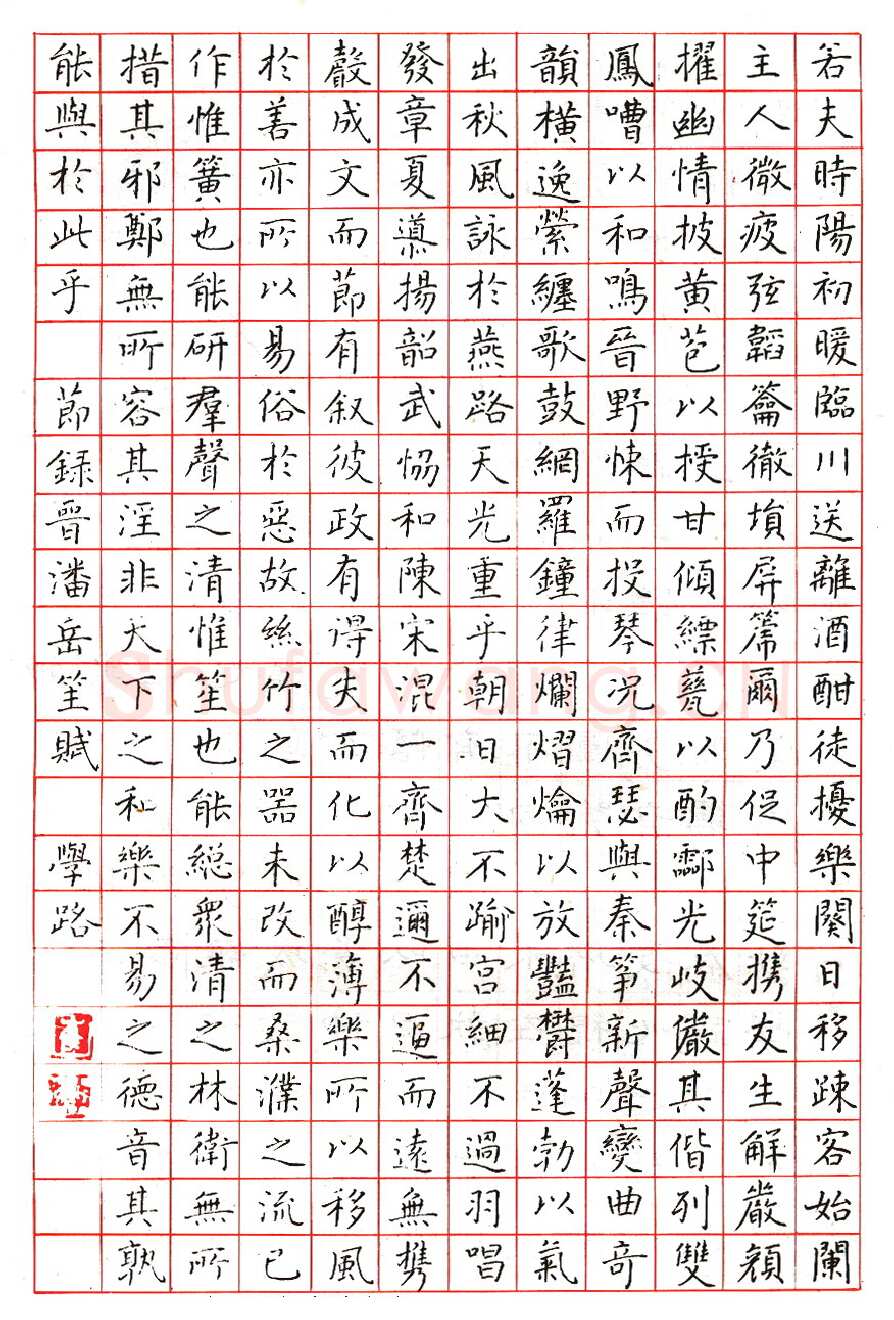 若夫時陽初暖臨川送離酒酣徒擾樂闋日移踈客始闌
主人微疲弦韜籥徹塤屏篪爾乃促中筵携友生解嚴顔
擢幽情披黄苞以授甘傾縹甆以酌酃光岐儼其偕列雙
鳳嘈以和鳴晉野悚而投琴况齊瑟與秦箏新聲變曲奇
韻橫逸縈纏歌鼓網羅鐘律爛熠爚以放豔欝蓬勃以氣
出秋風詠於燕路天光重乎朝日大不踰宮細不過羽唱
發章夏導揚韶武協和陳宋混一齊楚邇不逼而遠無携
聲成文而節有叙彼政有得失而化以醇薄樂所以移風
於善亦所以易俗於惡故絲竹之器未改而桑濮之流已
作惟簧也能研羣聲之清惟笙也能総衆清之林衛無所
措其邪鄭無所容其淫非天下之和樂不易之德音其孰
能與於此乎 節録晉潘岳笙賦 學路
Shufawang.cn